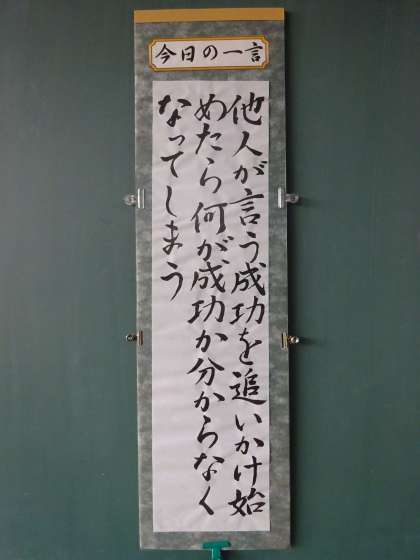 今日の一言
他人が言う成功を追いかけ始
めたら何が成功か分からなく
なってしまう